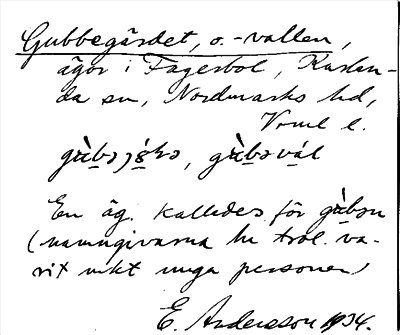 Gubbegärdet, o. -vallen,
ägor i Fagerbol, Karlan-
da sn, Nordmarks hd,
Vrml l.
gùbə jǽḷə, gùbəvál
En äg. kallades för gùbən
(namngivarna ha trol. va-
rit mkt unga personer)
E. Andersson 1934.